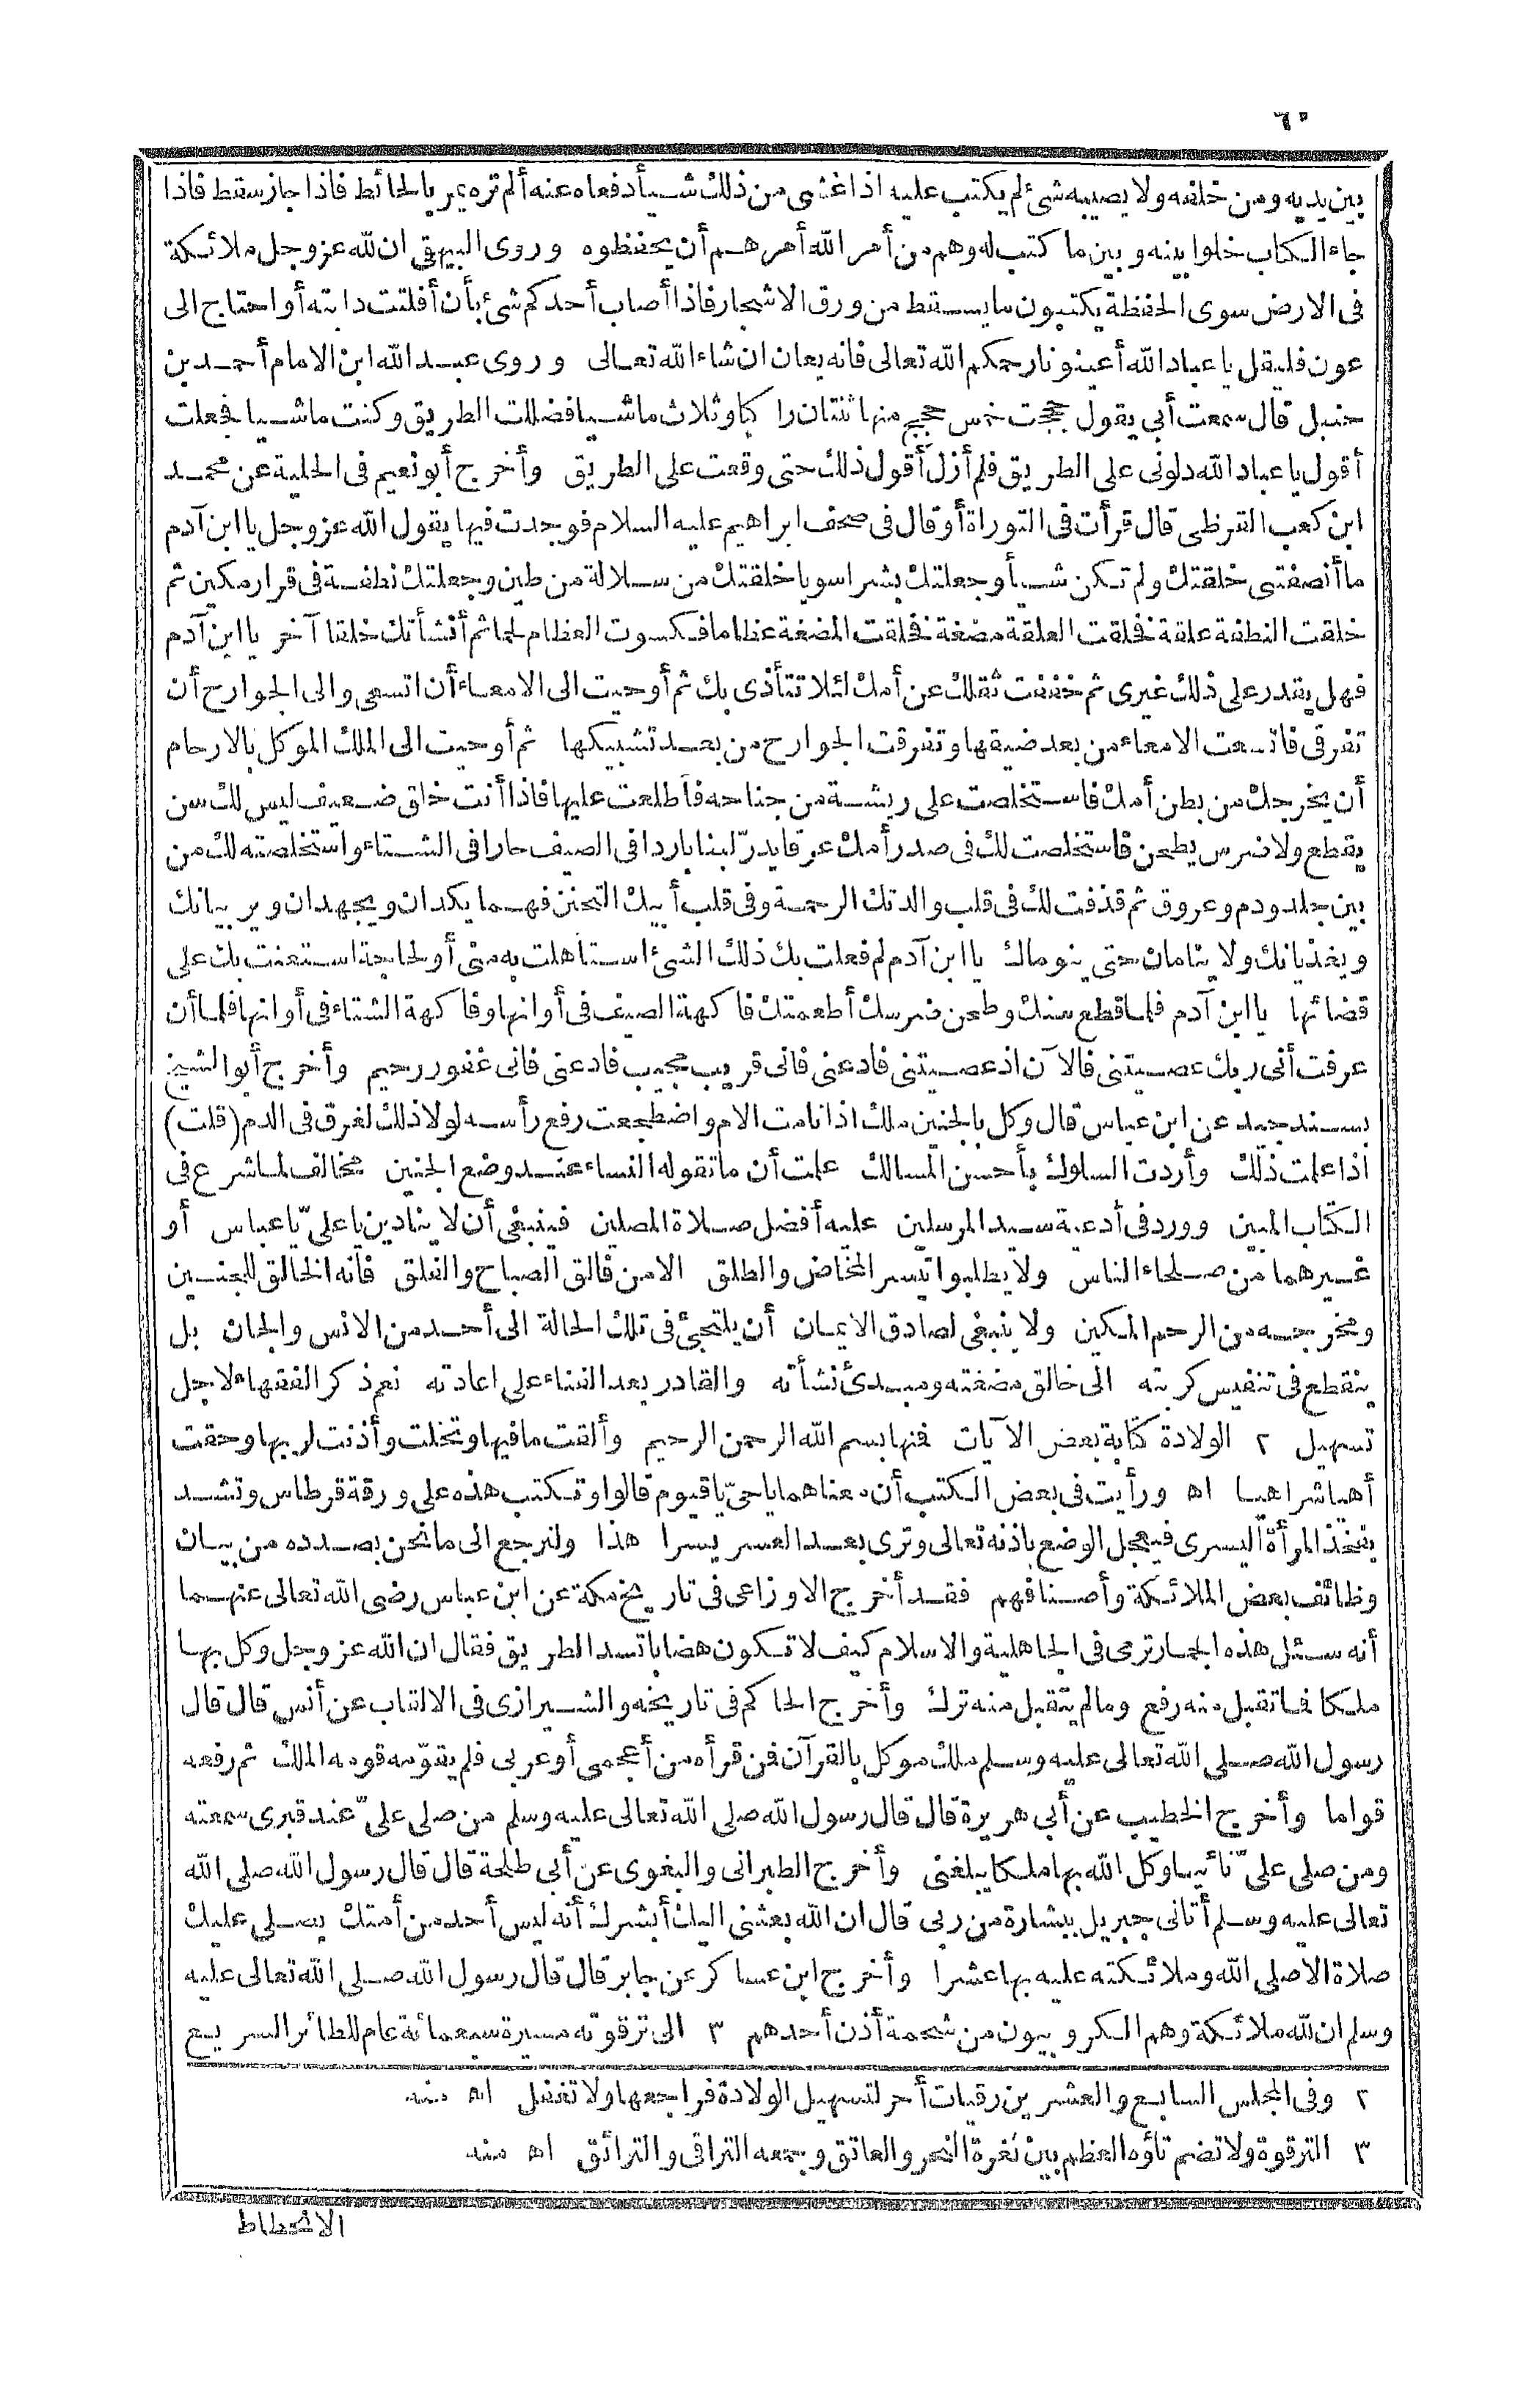 ٦٠
بين يديه ومن خلفه ولا يصيبه شئ لم يكتب عليه اذا غشى من ذلك شيأ دفعاه عنه ألم تره يمر بالحائط فاذا جاز سقط فاذا
جاء الكتاب خلوا بينه وبين ما كتب له وهم من أمر الله أمرهم أن يحفظوه وروى البيهقى ان لله عز وجل ملائكة
فى الارض سوى الحفظة يكتبون ما يسقط من ورق الاشجار فاذا أصاب أحدكم شئ بأن أفلتت دابته أو احتاج الى
عون فليقل يا عباد الله أعينونا رحمكم الله تعالى فانه يعان ان شاء الله تعالى وروى عبد الله ابن الامام أحمد بن
حنبل قال سمعت أبي يقول حججت خمس حجج منها ثنتان راكبا وثلاث ماشيا فضللت الطريق وكنت ماشيا فجعلت
أقول يا عباد الله دلونى على الطريق فلم أزل أقول ذلك حتى وقعت على الطريق وأخرج أبو نعيم فى الحلية عن محمد
ابن كعب القرظى قال قرأت فى التوراة أو قال فى صحف ابراهيم عليه السلام فوجدت فيها يقول الله عز وجل يا ابن آدم
ما أنصفتنى خلقتك ولم تكن شيأ وجعلتك بشرا سويا خلقتك من سلالة من طين وجعلتك نطفة فى قرار مكين ثم
خلقت النطفة علقة فخلقت العلقة مضغة فخلقت المضغة عظاما فكسوت العظام لحما ثم أنشأتك خلقا آخر يا ابن آدم
فهل يقدر على ذلك غيرى ثم خففت ثقلك عن أمك لئلا تتأذى بك ثم أوحيت الى الامعاء أن اتسعى والى الجوارح أن
تفرقى فاتسعت الامعاء من بعد ضيقها وتفرقت الجوارح من بعد تشبيكها ثم أوحيت الى الملك الموكل بالارحام
أن يخرجك من بطن أمك فاستخلصت على ريشة من جناحه فأطلعت عليها فاذا أنت خلق ضعيف ليس لك سن
يقطع ولا ضرس يطحن فاستخلصت لك فى صدر أمك عرقا يدرّ لبنا باردا فى الصيف حارا فى الشتاء واستخلصته لك من
بين جلد ودم وعروق ثم قذفت لك فى قلب والدتك الرحمة وفى قلب أبيك التحنن فهما يكدان ويجهدان ويربيانك
ويغذيانك ولا ينامان حتى ينوماك يا ابن آدم لم فعلت بك ذلك الشئ استأهلت به منى أو لحاجة استعنت بك على
قضائها يا ابن آدم فلما قطع سنك وطحن ضرسك أطعمتك فاكهة الصيف فى أوانها وفاكهة الشتاء فى أوانها فلما أن
عرفت أنى ربك عصيتنى فالآن اذ عصيتنى فادعنى فانى قريب مجيب فادعنى فانى غفور رحيم وأخرج أبو الشيخ
بسند جيد عن ابن عباس قال وكل بالجنين ملك اذا نامت الام واضطجعت رفع رأسه لولا ذلك لغرق فى الدم (قلت)
اذا علمت ذلك وأردت السلوك بأحسن المسالك علمت أن ما تقوله النساء عند وضع الجنين مخالف لما شرع فى
الكتاب المبين وورد فى أدعية سيد المرسلين عليه أفضل صلاة المصلين فينبغى أن لا ينادين يا علىّ يا عباس أو
غيرهما من صلحاء الناس ولا يطلبوا تيسر المخاض والطلق الا من فالق الصباح والفلق فانه الخالق للجنين
ومخرجه من الرحم المكين ولا ينبغى لصادق الايمان أن يلتجئ فى تلك الحالة الى أحد من الانس والجان بل
ينقطع فى تنفيس كربته الى خالق مضغته ومبدئ نشأته والقادر بعد الفناء على اعادته نعم ذكر الفقهاء لاجل
تسهيل ٢ الولادة كتابة بعض الآيات فمنها بسم الله الرحمن الرحيم وألقت ما فيها وتخلت وأذنت لربها وحقت
أهيا شراهيا اه ورأيت فى بعض الكتب أن معناهما يا حىّ يا قيوم قالوا وتكتب هذه على ورقة قرطاس وتشد
بفخذ المرأة اليسرى فيعجل الوضع باذنه تعالى وترى بعد العسر يسرا هذا ولنرجع الى ما نحن بصدده من بيان
وظائف بعض الملائكة وأصنافهم فقد أخرج الاوزاعى فى تاريخ مكة عن ابن عباس رضى الله تعالى عنهما
أنه سئل هذه الجمار ترمى فى الجاهلية والاسلام كيف لا تكون هضابا تسد الطريق فقال ان الله عز وجل وكل بها
ملكا فما تقبل منه رفع وما لم يتقبل منه ترك وأخرج الحاكم فى تاريخه والشيرازى فى الالقاب عن أنس قال قال
رسول الله صلى الله تعالى عليه وسلم ملك موكل بالقرآن فمن قرأه من أعجمى أو عربى فلم يقوّمه قومه الملك ثم رفعه
قواما وأخرج الخطيب عن أبى هريرة قال قال رسول الله صلى الله تعالى عليه وسلم من صلى علىّ عند قبرى سمعته
ومن صلى علىّ نائيا وكل الله بها ملكا يبلغنى وأخرج الطبرانى والبغوى عن أبى طلحة قال قال رسول الله صلى الله
تعالى عليه وسلم أتانى جبريل ببشارة من ربى قال ان الله بعثنى اليك أبشرك أنه ليس أحد من أمتك يصلى عليك
صلاة الا صلى الله وملائكته عليه بها عشرا وأخرج ابن عساكر عن جابر قال قال رسول الله صلى الله تعالى عليه
وسلم ان لله ملائكة وهم الكروبيون من شحمة أذن أحدهم ٣ الى ترقوته مسيرة سبعمائة عام للطائر السريع
٢ وفى المجلس السابع والعشرين رقيات أخر لتسهيل الولادة فراجعها ولا تغفل اه منه
٣ الترقوة ولا تضم تاؤه العظم بين ثغرة النحر والعاتق وجمعه التراقى والترائق اه منه
الانحطاط